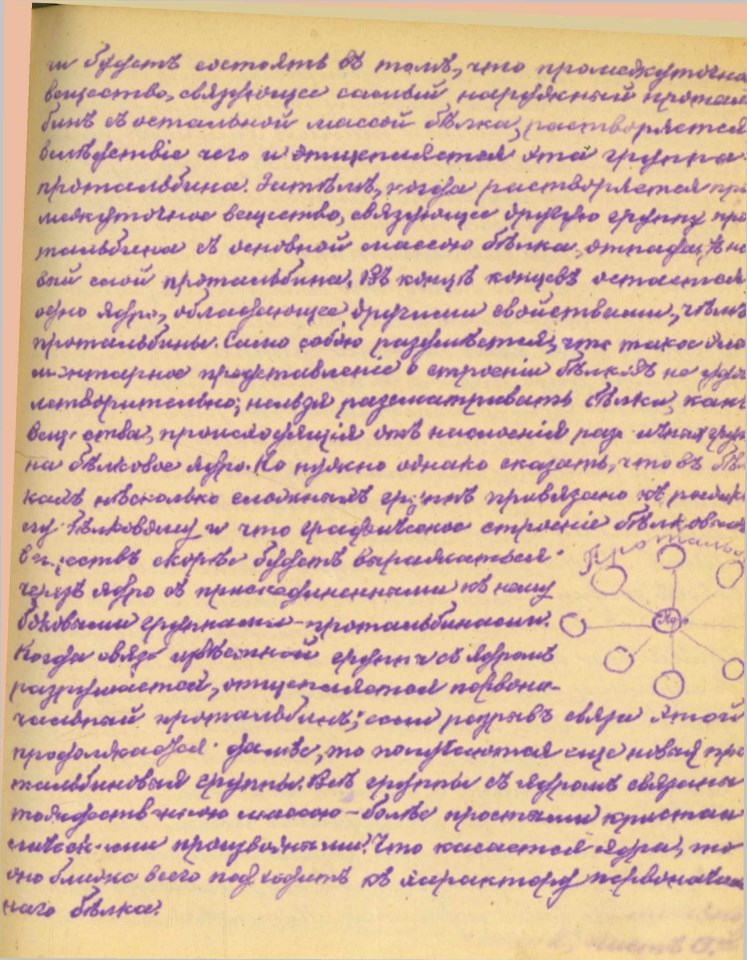 ти будетъ состоять въ томъ, что промежуточно
вещество, связующее самый наружный протал
бинъ съ остальной массой бѣлка, растворяется
вслѣдствіе чего и отщепляется эта группа
протальбина. Затѣмъ, когда растворяется про
межуточное вещество, связующее другую группу про
тальбина съ основной массою бѣлка, отпадаетъ но
вый слой протальбина. Въ концѣ концевъ остается
одно ядро, обладающее другими свойствами, чѣмъ
протальбины. Само собою разумѣется, что такое эле
ментарное представленіе о строеніи бѣлковъ не удов
летворительно; нельзя разсматривать бѣлки, какъ
вещества, происходящія отъ наслоенія разныхъ груп
на бѣлковое ядро. Но нужно однако сказать, что въ бѣл
кахъ нѣсколько сложныхъ группъ привязано къ
бѣлковому и что графическое строеніе бѣлковыхъ
веществъ скорѣе будетъ выражаться
черезъ ядро съ присоединенными къ нему
боковыми группами-протальбинами.
Когда связь извѣстной группы съ ядромъ
разрушается, отщепляется первона-
чальный протальбинъ; если разрывъ связи этой
продолжается далѣе, то получается еще новая про
тальбиновая группа. Всѣ группы съ ядромъ связаны
тождественною массою - болѣе простыми кристал
лическими продуктами. Что касается ядра, то
оно ближе всего подходитъ къ характеру первоначаль
наго бѣлка.
Протальб
Ядро